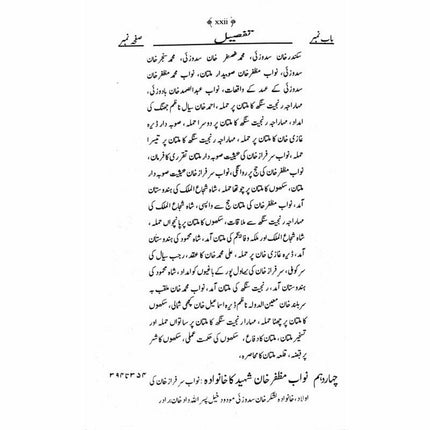 ﴿ xxii ﴾
باب نمبر تفصیل صفحہ نمبر
سکندر خان سدوزئی، محمد غضنفر خان سدوزئی، محمد سنجر خان
سدوزئی، نواب مظفر خان صوبیدار ملتان، نواب محمد مظفر خان
سدوزئی کے عہد کے واقعات، نواب عبدالصمد خان بادوزئی،
مہاراجہ رنجیت سنگھ کا ملتان پر حملہ، احمد خان سیال ناظم جھنگ کی
امداد، مہاراجہ رنجیت سنگھ کا ملتان پر دوسرا حملہ، صوبہ دار ڈیرہ
غازی خان کا ملتان پر حملہ، مہاراجہ رنجیت سنگھ کا ملتان پر تیسرا
حملہ، نواب سرفراز خان کی بحیثیت صوبہ دار ملتان تقرری کا فرمان،
نواب مظفر خان کی حج پر روانگی، نواب سرفراز خان بحیثیت صوبہ دار
ملتان، سکھوں کا ملتان پر چوتھا حملہ، شاہ شجاع الملک کی ہندوستان
آمد، نواب مظفر خان کی حج سے واپسی، شاہ شجاع الملک کی
مہاراجہ رنجیت سنگھ سے ملاقات، سکھوں کا ملتان پر پانچواں حملہ،
شاہ محمود کی ہندوستان
آمد، ڈیرہ غازی خان پر حملہ، علی محمد خان کا عقد، رجب سیال کی
سرکوبی، سرفراز خان کی بہاول پور کے باغیوں کو امداد، شاہ محمود کی
ہندوستان آمد، رنجیت سنگھ کی ملتان آمد، نواب محمد خان ملقب بہ
سربلند خان معین الدولہ ناظم ڈیرہ اسماعیل خان کچھی شمالی، سکھوں
کا ملتان پر چھٹا حملہ، مہاراجہ رنجیت سنگھ کا ملتان پر ساتواں حملہ اور
تسخیر ملتان، ملتان کا دفاع، سکھوں کی حکمت عملی، سکھوں کا شہر
پر قبضہ، قلعہ ملتان کا محاصرہ،
چہاردہم نواب مظفر خان شہید کا خانوادہ: نواب سرفراز خان کی ۳۵۴ تا ۳۹۴
اولاد، خانوادہ لشکر خان سدوزئی مودود خیل پسر اللہ داد خان برادر